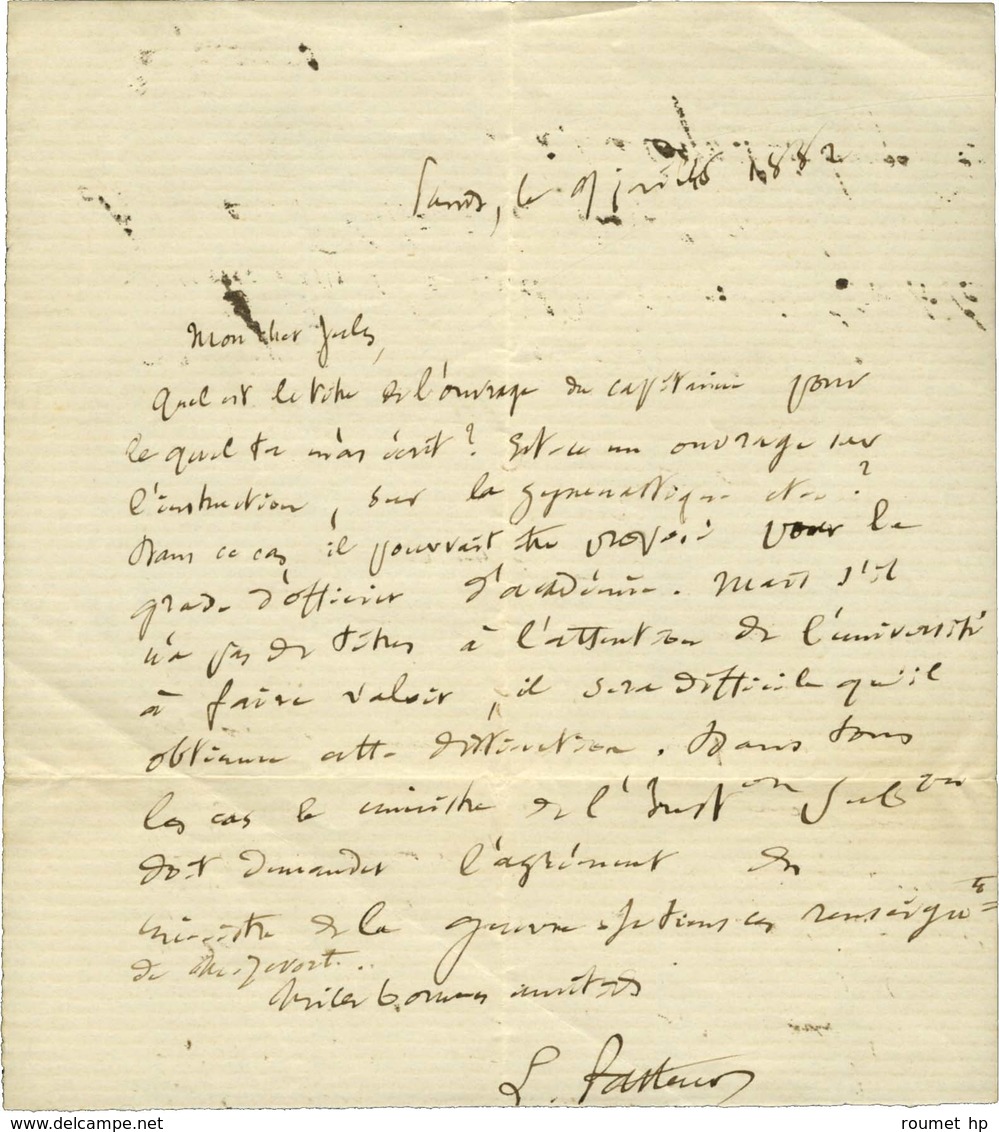 Paris, le 9 juillet 1882
Mon cher Jules,
Quel est le titre de l'ouvrage du capitaine pour
lequel tu m'as écrit ? Est-ce un ouvrage sur
l'instruction, sur la gymnastique etc. ?
Dans ce cas, il pourrait être proposé pour le
grade d'officier d'académie. Mais s'il
n'a pas de titres à l'attention de l'université
à faire valoir, il sera difficile qu'il
obtienne cette distinction. Dans tous
les cas le ministre de l'Inston Publ
doit demander l'agrément du
ministre de la guerre. Je tiens ces renseignts
de
Mille bonnes amitiés
L. Pasteur
www.delcampe.net
roumet hp